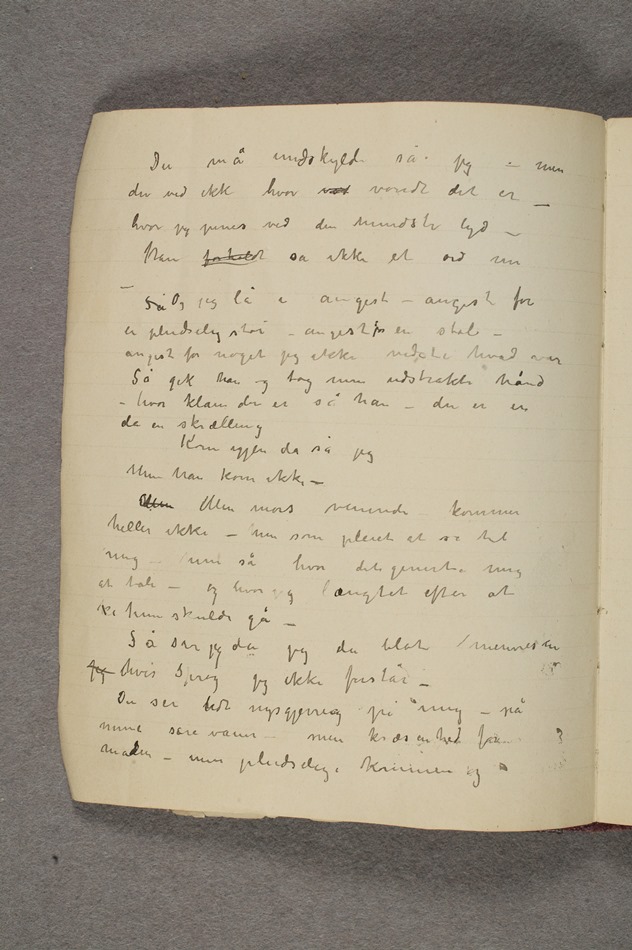 Du må undskylde sa jeg – men
du ved ikk hvor vondt det er –
hvor jeg pines ved den mindste lyd –
Han forholdt sa ikke et ord mer
– Så Og jeg lå i angest – angest for
en pludselig støi – angest for en stol –
angest for noget jeg ikke vidste hvad var
Så gik han og tog min udstrakte hånd
– hvor klam du er sa han – du er en
da en skrælling
Kom igjen da sa jeg
Men han kom ikke –
Men Men mors veninde kommer
heller ikke – hun som pleiet at se til
mig – hun så hvor det generte mig
at tale – og hvor jeg længtet efter at
hun skulde gå –
Så ser jeg da på de blåe
Jeg hvis Sprog jeg ikke forstår –
Du ser lidt nysgjerrig på mig – på
mine sære vaner – min kræsenhed for
maden – min pludselige kommen og